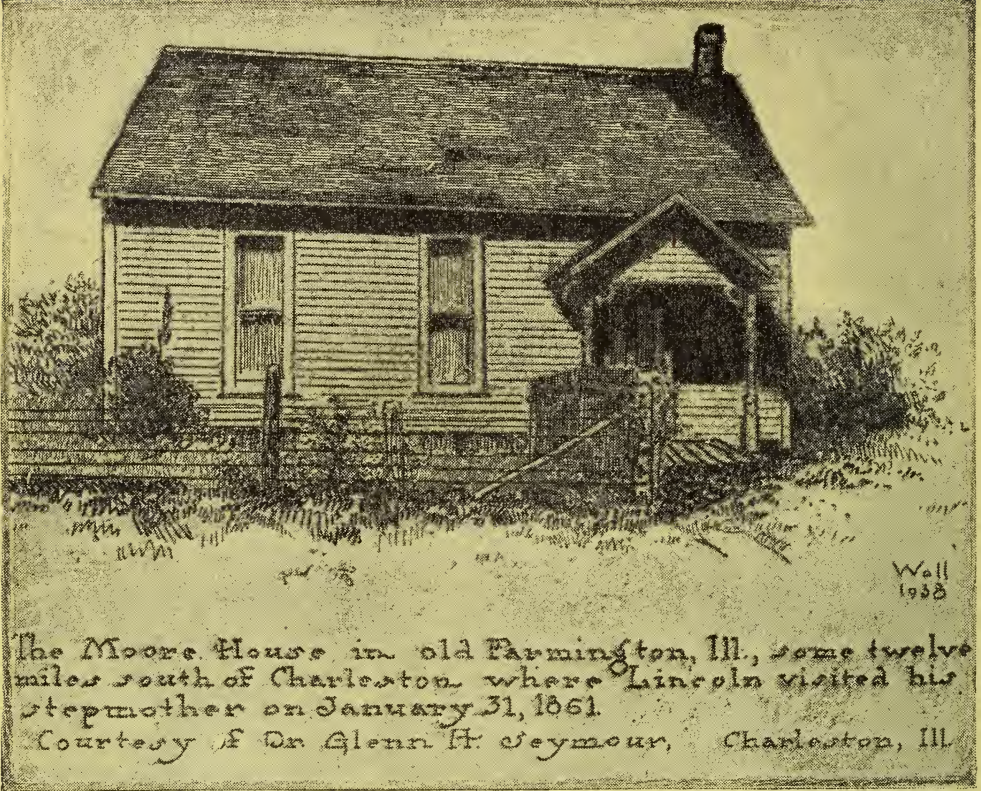 Wall
1938
The Moore House in old Farmington, Ill., some twelve
miles south of Charleston where Lincoln visited his
stepmother on January 31, 1861
Courtesy of Dr. Glenn H. Seymour, Charleston, Ill.